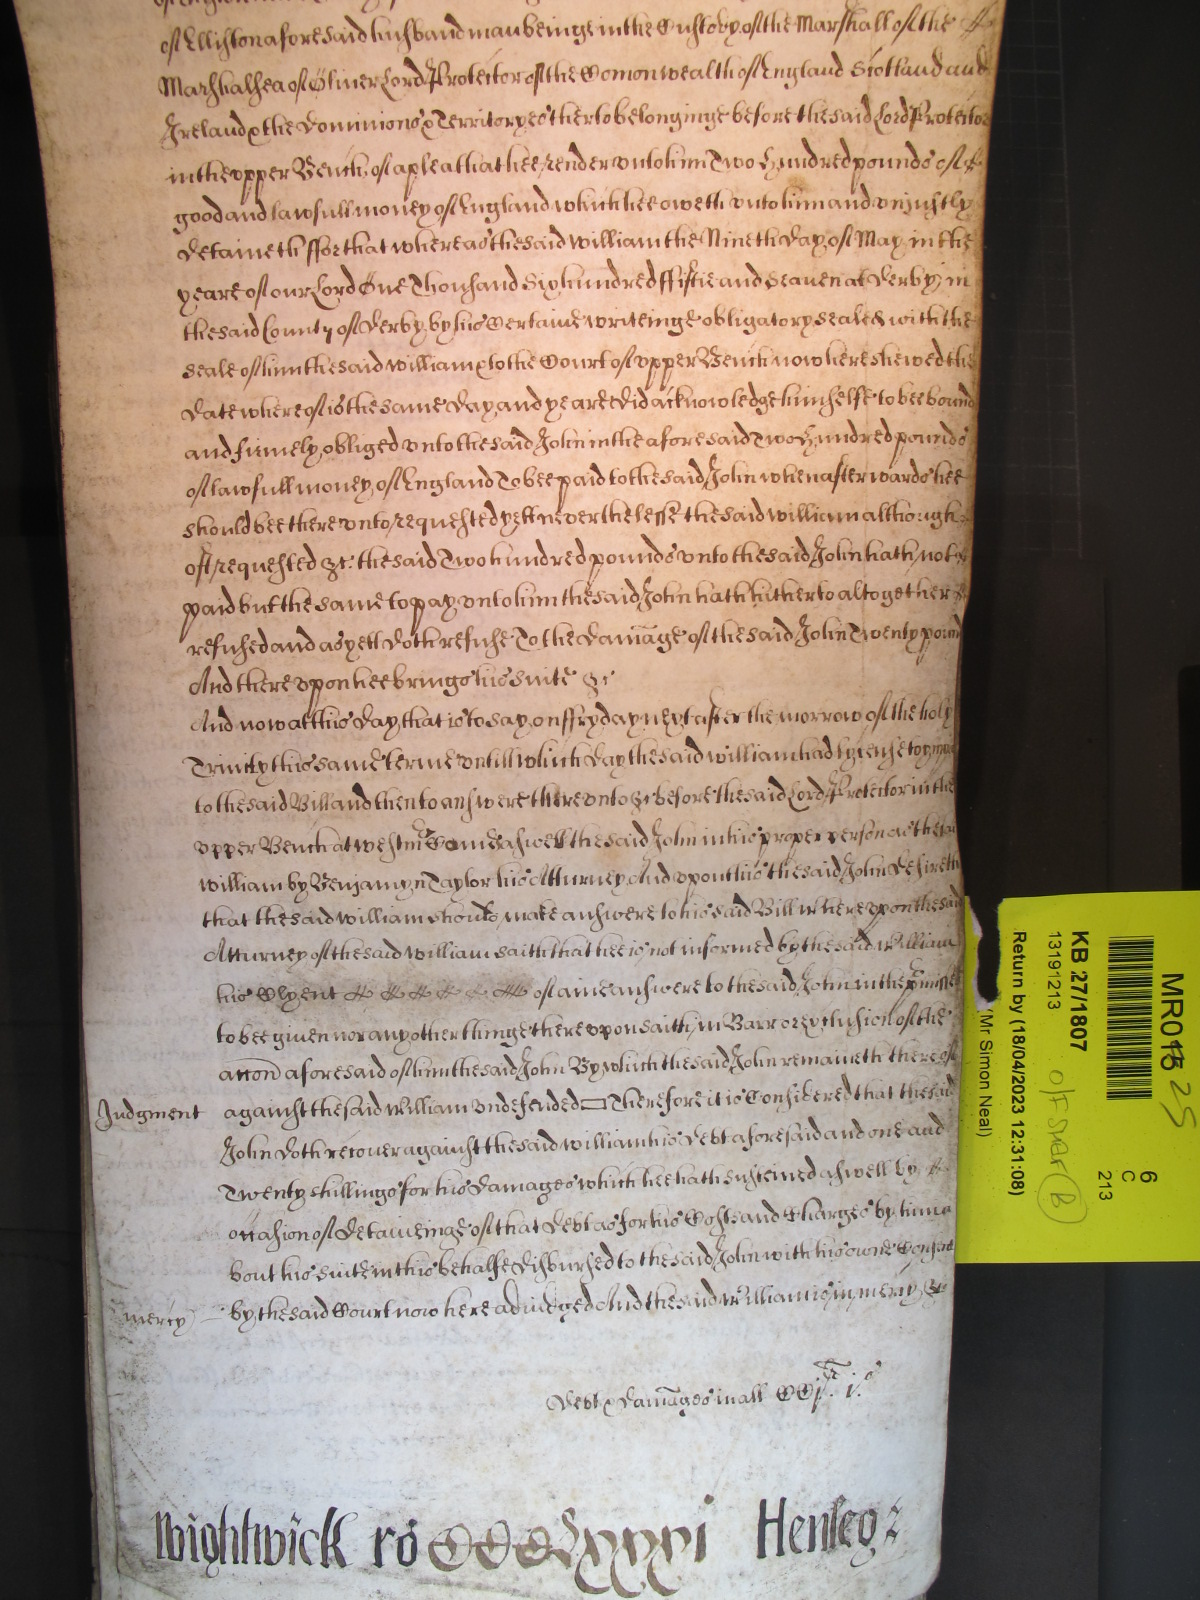 of Elliston aforesaid husbandman beinge in the Custody of the Marshall of the
Marshalsea of Oliver Lord Protector of the Comonwealth of England Scotland and
Ireland & the Dominions & Territoryes therto belonginge before the said Lord Protector
in the vpper Bench of a plea that hee render vnto him Two hundred pounds of
good and lawfull money of England which hee oweth vnto him and vniustly
detaineth ffor that whereas the said William the Nineth day of May in the
yeare of our Lord One Thousand Six hundred ffiftie and Seaven at Derby in
the said County of Derby by his Certaine writeinge obligatory sealed with the
seale of him the said William & to the Court of vpper Bench now here shewed the
date whereof is the same day and yeare did acknowledge himselfe to bee bound
and firmely obliged vnto the said John in the aforesaid Two hundred pounds
of lawfull money of England To bee paid to the said John when afterwards hee
should bee therevnto requested yett neverthelesse the said William although
oft requested &c. the said Two hundred pounds vnto the said John hath not
paid but the same to pay vnto him the said John hath hitherto altogether
refused and as yett doth refuse To the damãge of the said John Twenty pound
And therevpon hee brings his suite &c
And now att this day that is to say on ffryday next after the morrow of the holy
Trinity this same terme vntill which day the said William had lycense to
to the said Bill and then to answere therevnto &c before the said Lord Protector in the
vpper Bench at Westmr Came aswell the said John in his proper person as the
William by Benjamyn Taylor his Atturney And vpon this the said John desireth
that the said William should make answere to his said Bill wherevpon the said
Atturney of the said William saith that hee is not informed by the said William
his Clyent of aine answere to the said John in the
to bee given nor any other thinge therevpon saith in Barr or exclusion of the
accõn aforesaid of him the said John By which the said John remaineth thereof
Judgment against the said William vndefended Therefore it is Considered that the said
John doth recover against the said William his debt aforesaid and one and
Twenty shillings for his damages which hee hath susteined aswell by
occasion of detaineinge of that debt as for his Costs and Charges by him a
bout his suite in this behalfe disbursed to the said John with his owne
mercy by the said Court now here adiudged And the said William is in mercy &c
debt & damãges in all CCjli. j.s
Wightwick ro CCCLxxxxi Henley
MR015 25
6
C
213
KB 27/1807
13191213
B
Return by (18/04/2023 12:31:08)
(Mr Simon Neal)